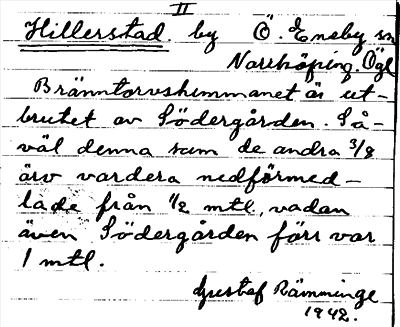 II
Hillerstad. by Ö. Eneby sn
Norrköping. Ögl
Bränntorvshemmanet är ut-
brutet av Södergården. Så-
väl denna som de andra 3/8
äro vardera nedförmed-
lade från 1/2 mtl, vadan
även Södergården förr var
1 mtl.
Gustaf Rämminge
1942.